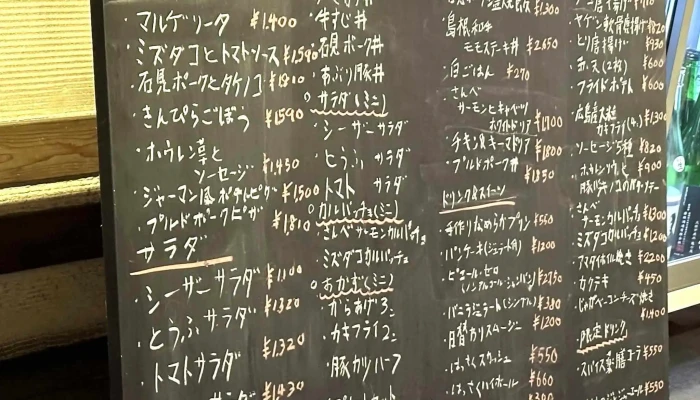 ・マルゲリータ ¥1,400
・ミズダコとトマトソース ¥1,590
・石見ポークとタケノコ ¥1,810
・きんぴらごぼう ¥1,590
・ホウレン草と
ソーセージ ¥1,450
・ジャーマン風ポテトピザ ¥1,500
・プルドポークピザ ¥1,810
サラダ
・シーザーサラダ ¥1,100
・とうふサラダ ¥1,320
・トマトサラダ ¥1,320
サラダ ¥1,430
・牛すじ丼
・石見ポーク丼
・あぶり豚丼
サラダ(ミニ)
・シーザーサラダ
・とうふ サラダ
・トマト サラダ
カルパッチョ(ミニ)
・さんべサーモンカルパッチョ
・ミズダコカルパッチョ
おかず(ミニ)
・からあげ3コ
・カキフライ2コ
・豚カツハーフ
¥1,300
・島根和牛
モモステーキ丼 ¥2,650
・白ごはん ¥270
・さんべ
サーモンとキャベツ
ホワイトドリア ¥1,700
・チキン&キーマドリア ¥1,800
・プルドポーク丼 ¥1,350
ドリンク&スイーツ
・手作りなめらかプリン ¥550
・パンケーキ(ジェラート付) ¥1200
・ピエール・ゼロ
(ノンアルコールシャンパン) ¥2750
・バニラジェラート(シングル) ¥380
・日替りスムージー ¥1200
・はっさくスカッシュ ¥550
・はっさくハイボール ¥660
・ヤゲン軟骨唐揚げ ¥820
・とり唐揚げ ¥930
・赤天(2枚) ¥600
・フライドポテト ¥600
・広島産大粒
カキフライ(4コ) ¥1300
・ソーセージ5種 ¥820
・ホウレンソウと ¥900
・さんべ
サーモンカルパッチョ ¥1300
・ミズダコカルパッチョ ¥1200
・アマダイホイル焼き ¥2200
・カクテキ ¥450
・じゃがベーコンチーズ焼き
¥1,400
限定ドリンク
・スパイス薬膳コーラ ¥550
¥550